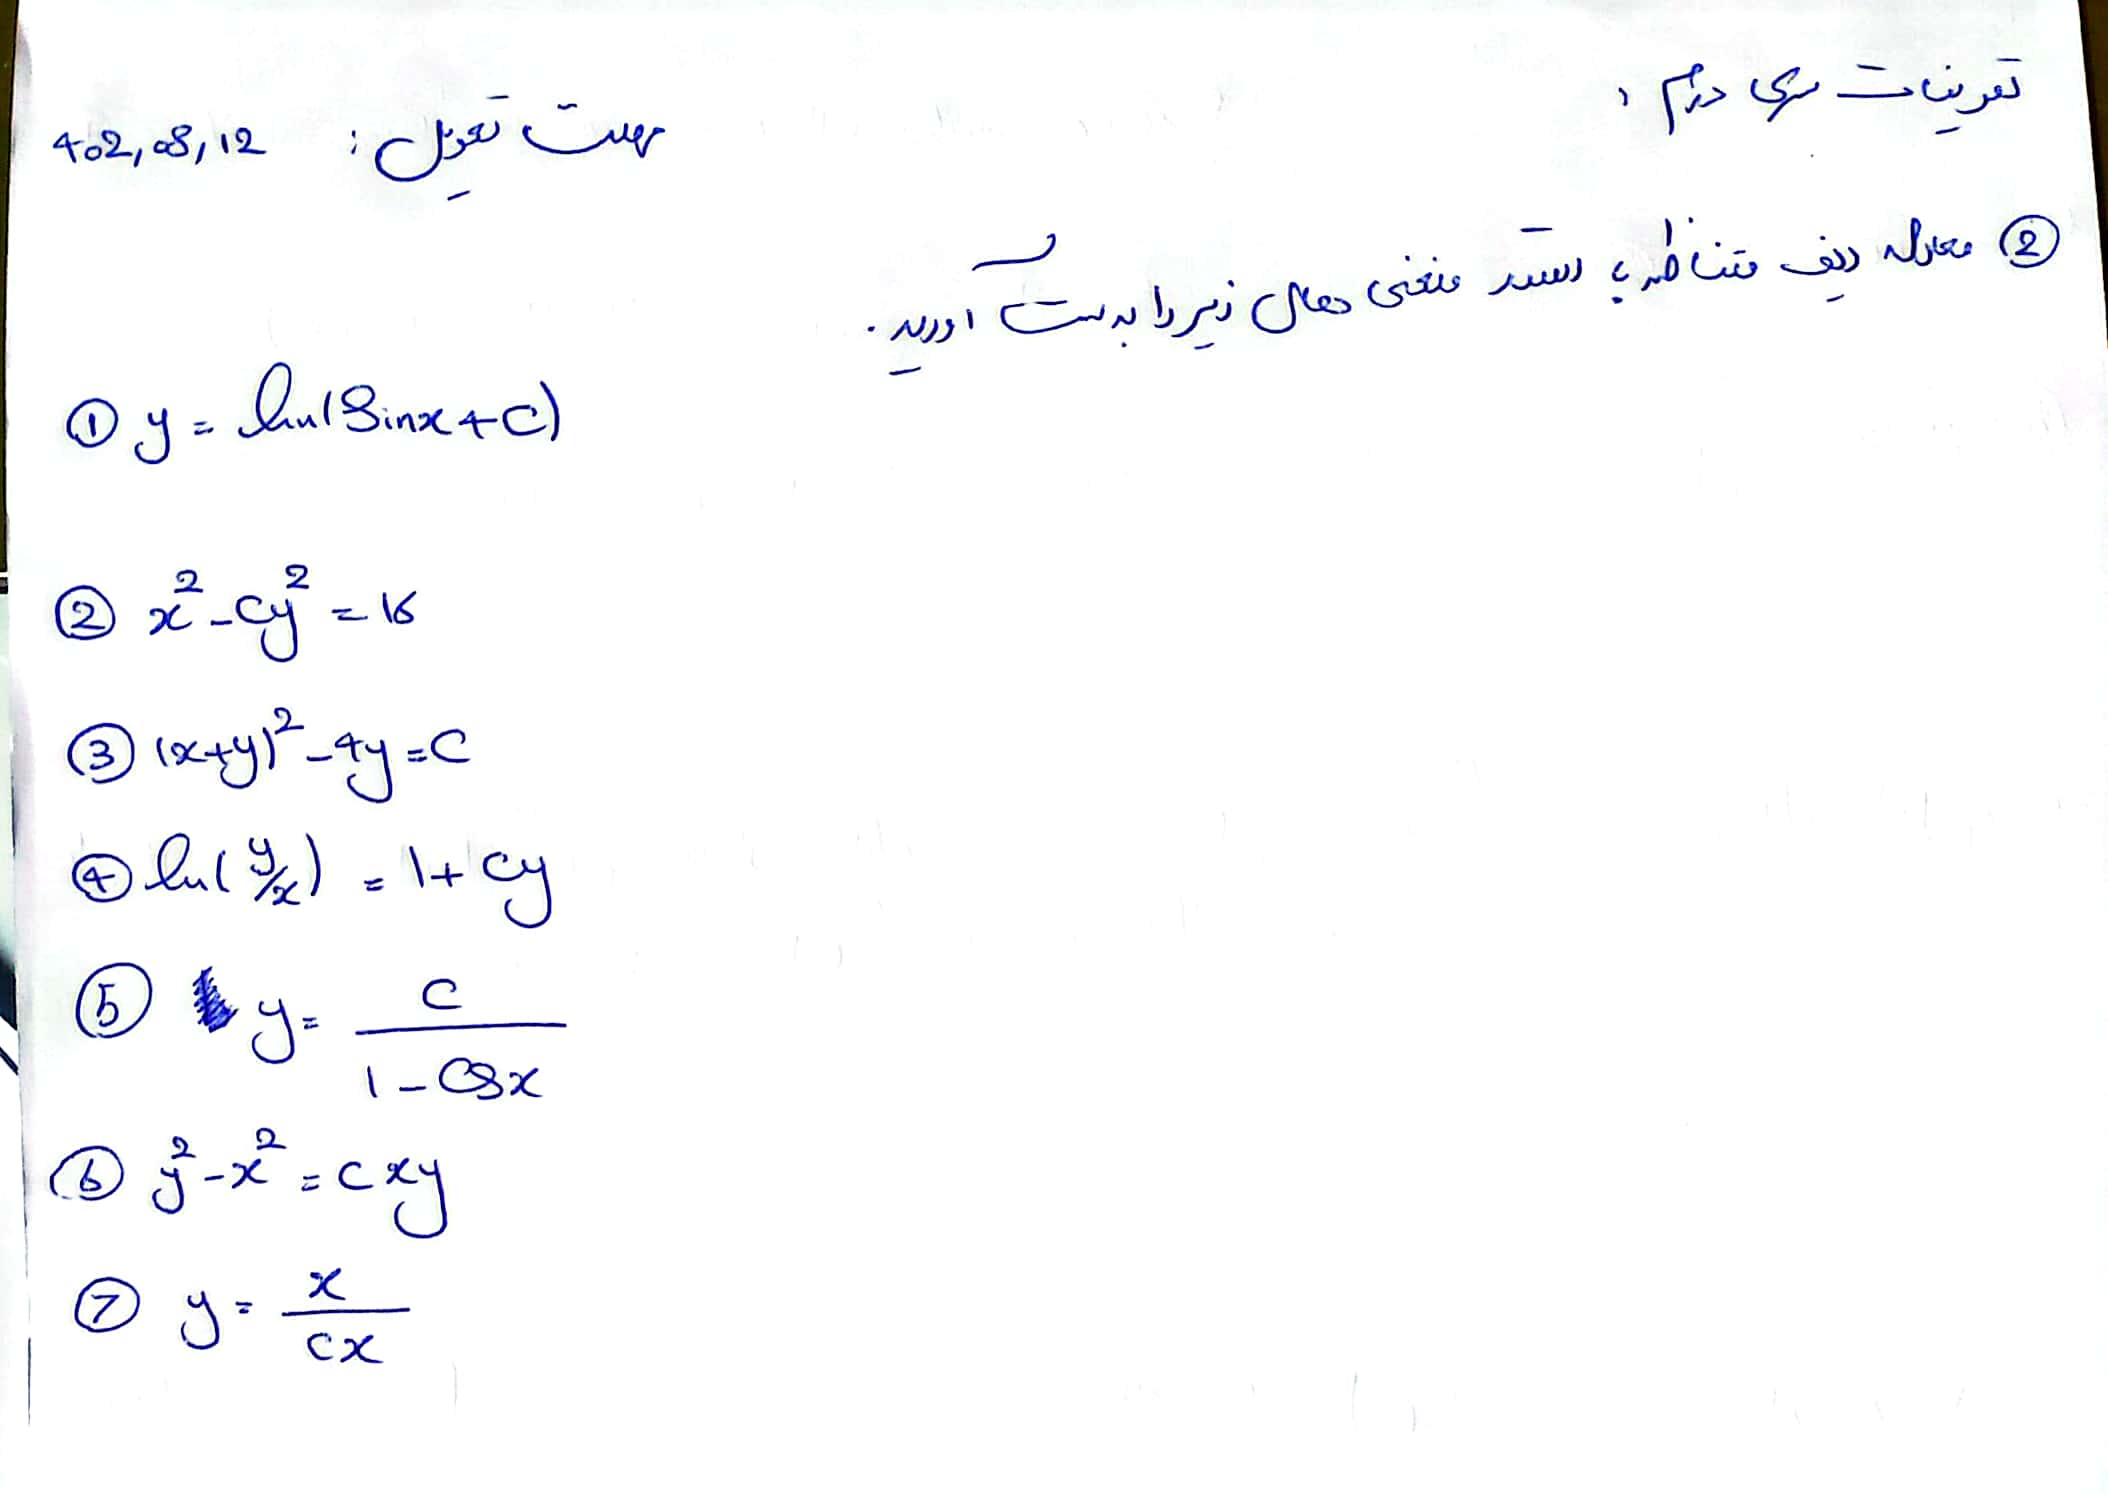 تمرینات سری دوم :
مهلت تحویل : 402,08,12
② معادله دیف متناظر با دسته منحنی های زیر را بدست آورید.
① y = ln(Sinx+c)
② x²-cy² = 16
③ (x+y)²-4y=c
④ ln(y/x) = 1+cy
⑤ y = c / 1-Cosx
⑥ y²-x² = cxy
⑦ y = x / cx